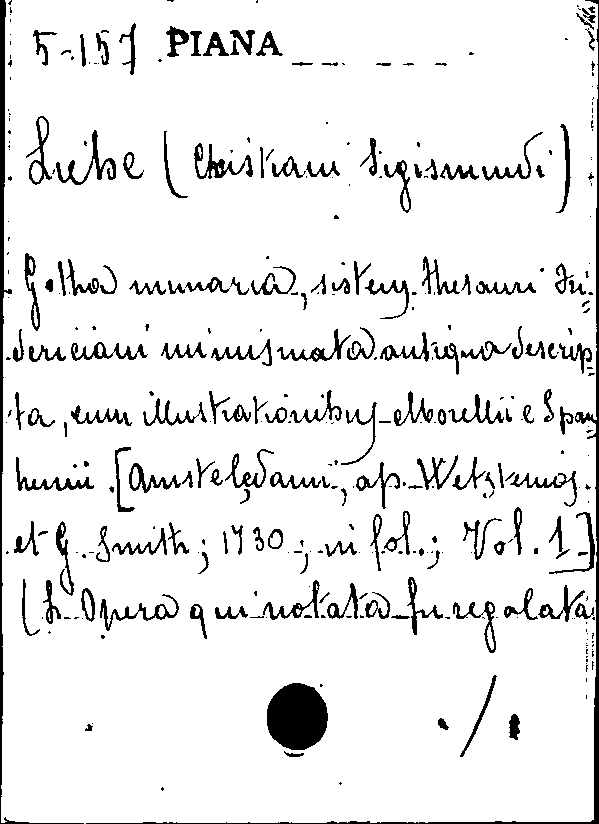 5-157 PIANA
Liebe (Christiani Sigismundi)
Gotha numaria, sistens thesauri Fri=
dericiani numismata antiqua descrip=
ta, cum illustrationibus Morellii e Span=
hemii. [Amstelędami, ap. Wetstenios.
et G. Smith; 1730; in fol.; Vol. 1]
(L'Opera qui notata fu regalata
./.